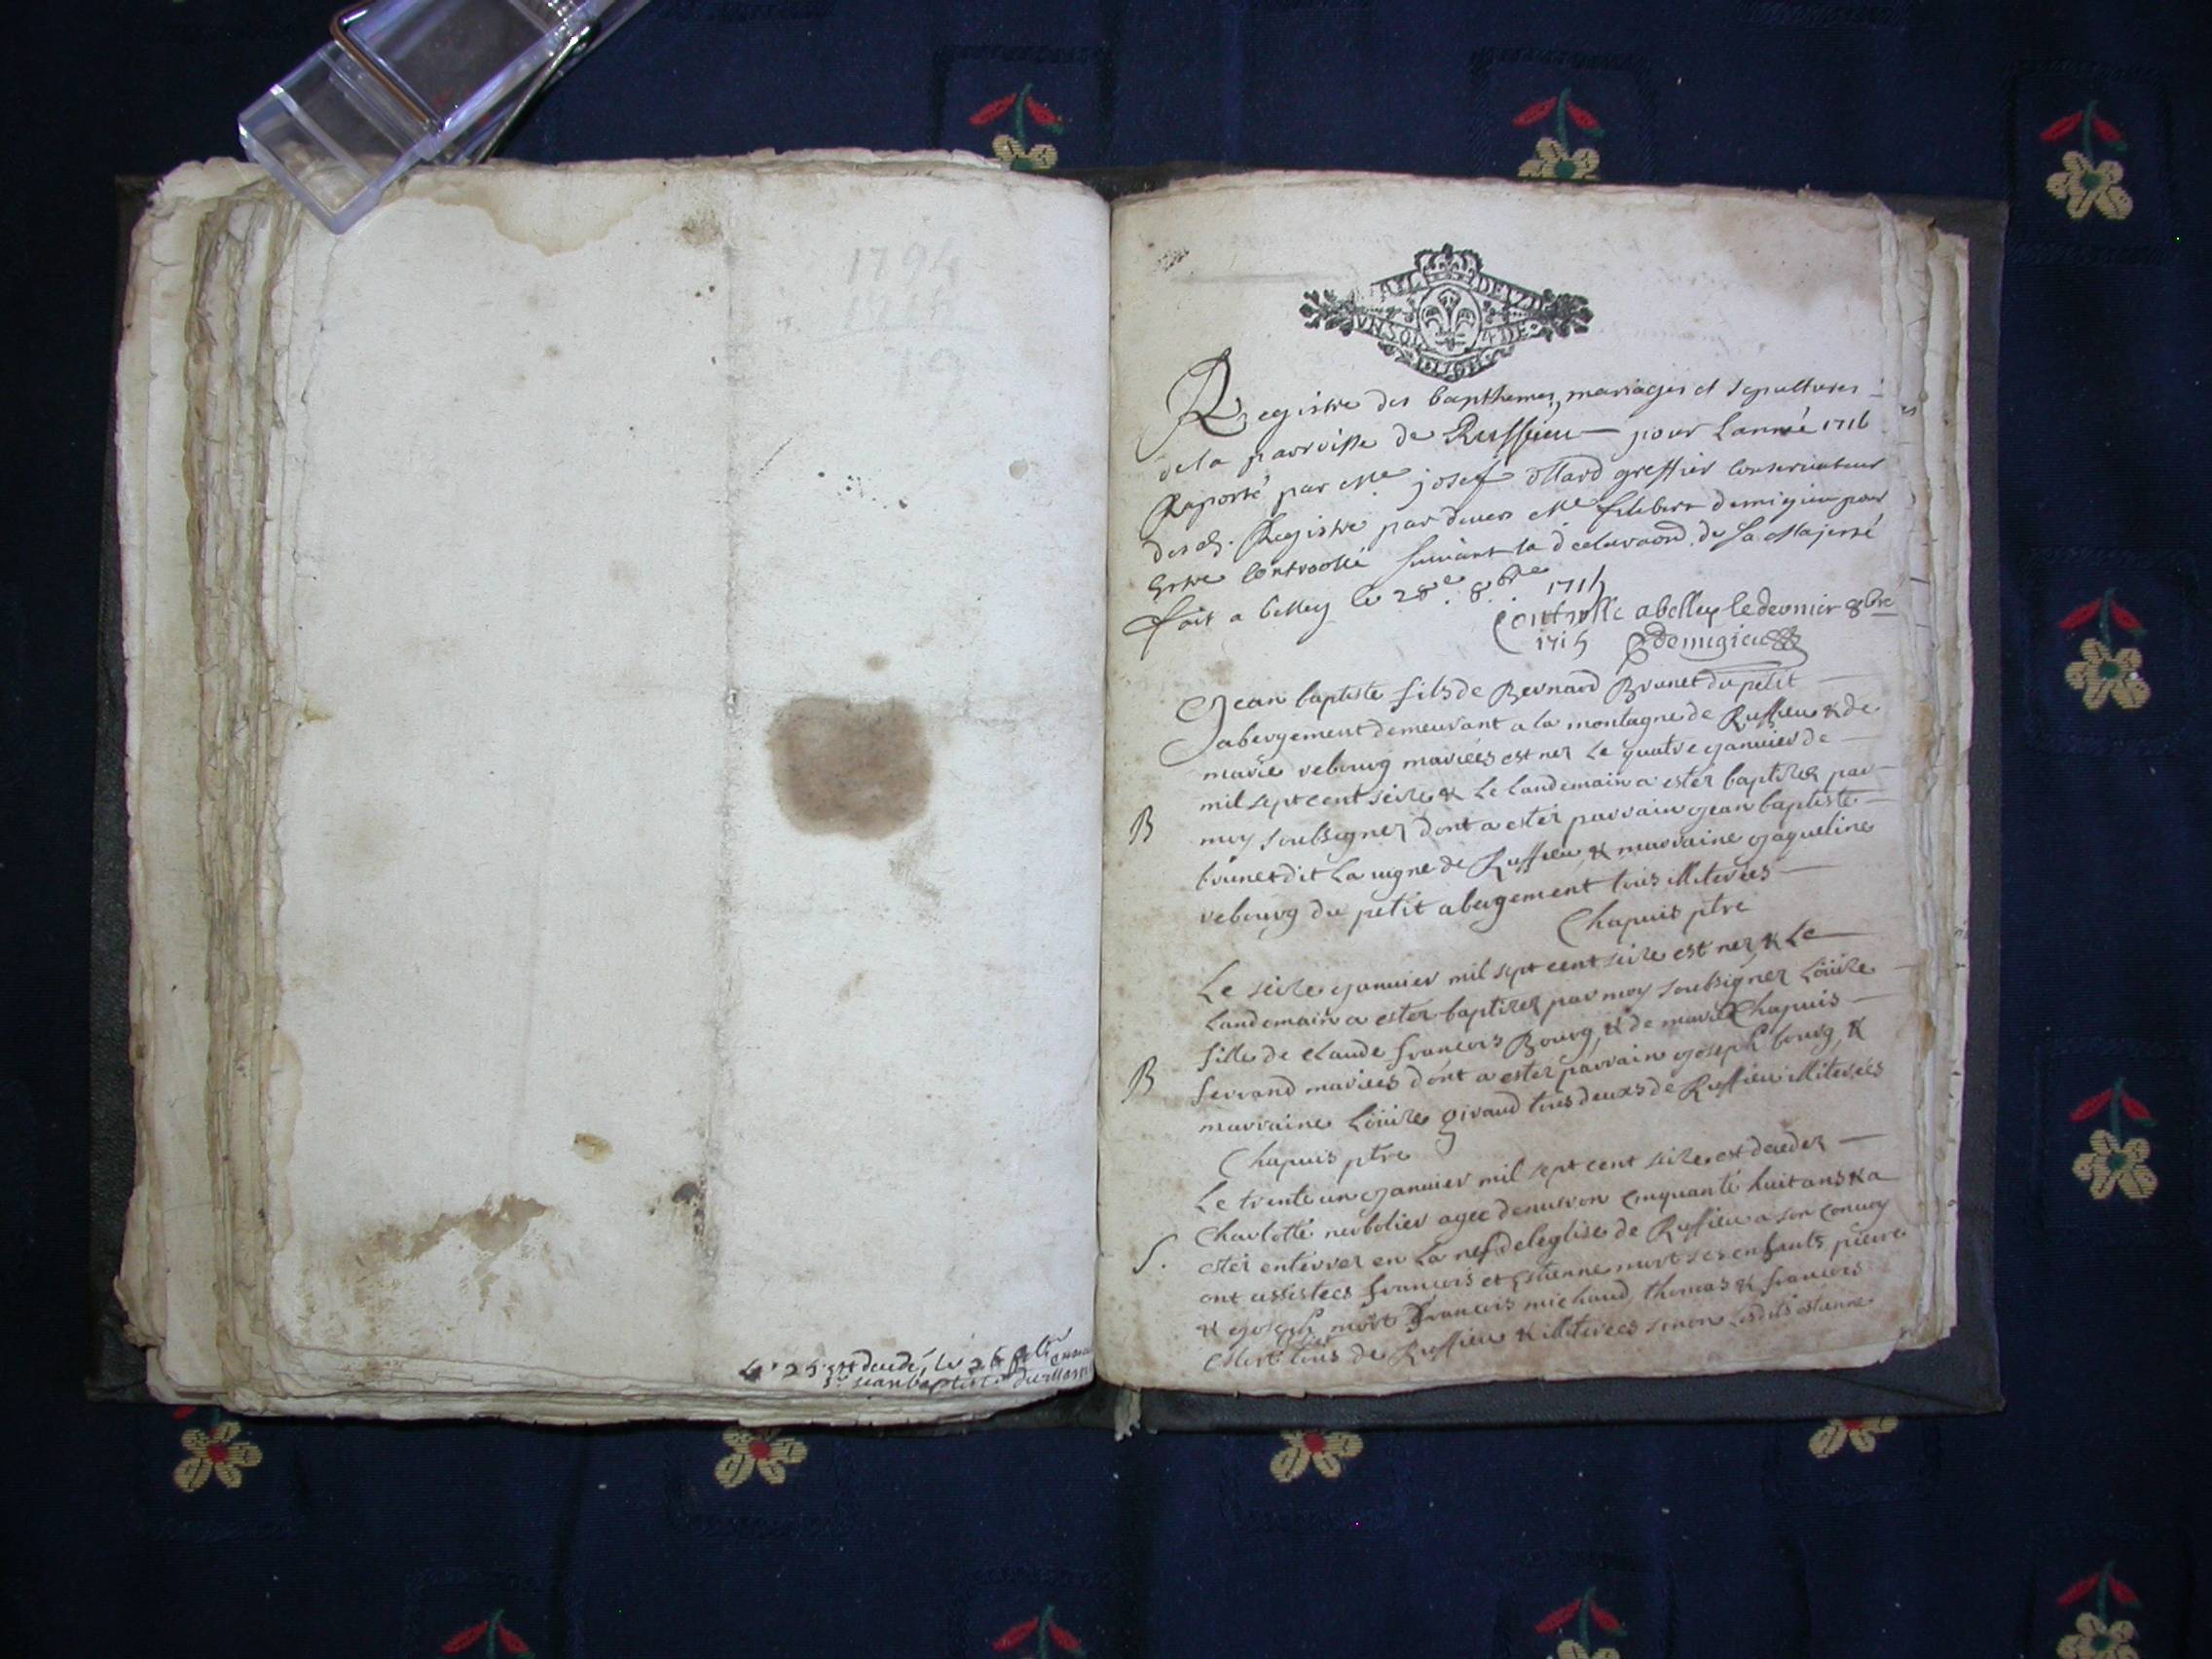 1794
1715
79
Le 25 est decedé, le 26
Sr jean baptiste
GNAL DE 2 D
UN SOL 4 DE
Registre des bapthemes, mariages et sepultures
de la parroisse de Ruffieu pour Lanneé 1716
Raporté par Me josef ollard greffier Conservateur
desd. Registre par devers Me filibert demigieu pour
Estre Controollé suivant la declaraon de Sa Majesté
fait a belley le 28e 8bre 1715
Controllé a belley le dernier 8bre
1715 demigieu
Jean baptiste fils de Bernard Brunet du petit
abergement demeurant a la montagne de Ruffieu & de
marie rebourg mariées est nez Le quatre janvier de
mil sept cent seize & Le Landemain a estéz baptizéz par
B
moy soubsignez dont a estéz parrain jean baptiste
brunet dit La vigne de Ruffieu & marraine jaqueline
rebourg du petit abergement tous illiterées
Chapuis ptre
Le seize janvier mil sept cent seize est nez & Le
Landemain a estéz baptizéz par moy soubsignez Loüize
fille de claude francois Bourg, & de marie Chapuis
B
ferrand mariees dont a estéz parrain joseph bourg, &
marraine Loüize giraud tous deux de Ruffieu illiterées
Chapuis ptre
Le trente un janvier mil sept cent seize est decedez
Charlotte nerbolier agee denviron Cinquante huit ans & a
S.
estéz enterrez en La nef de leglise de Ruffieu a son convoy
ont assistees francois et Estienne mort ses enfants pierre
& joseph mort francois michaud, thomas & francois
tous de Ruffieu & illiterees sinon Lesdits estienne